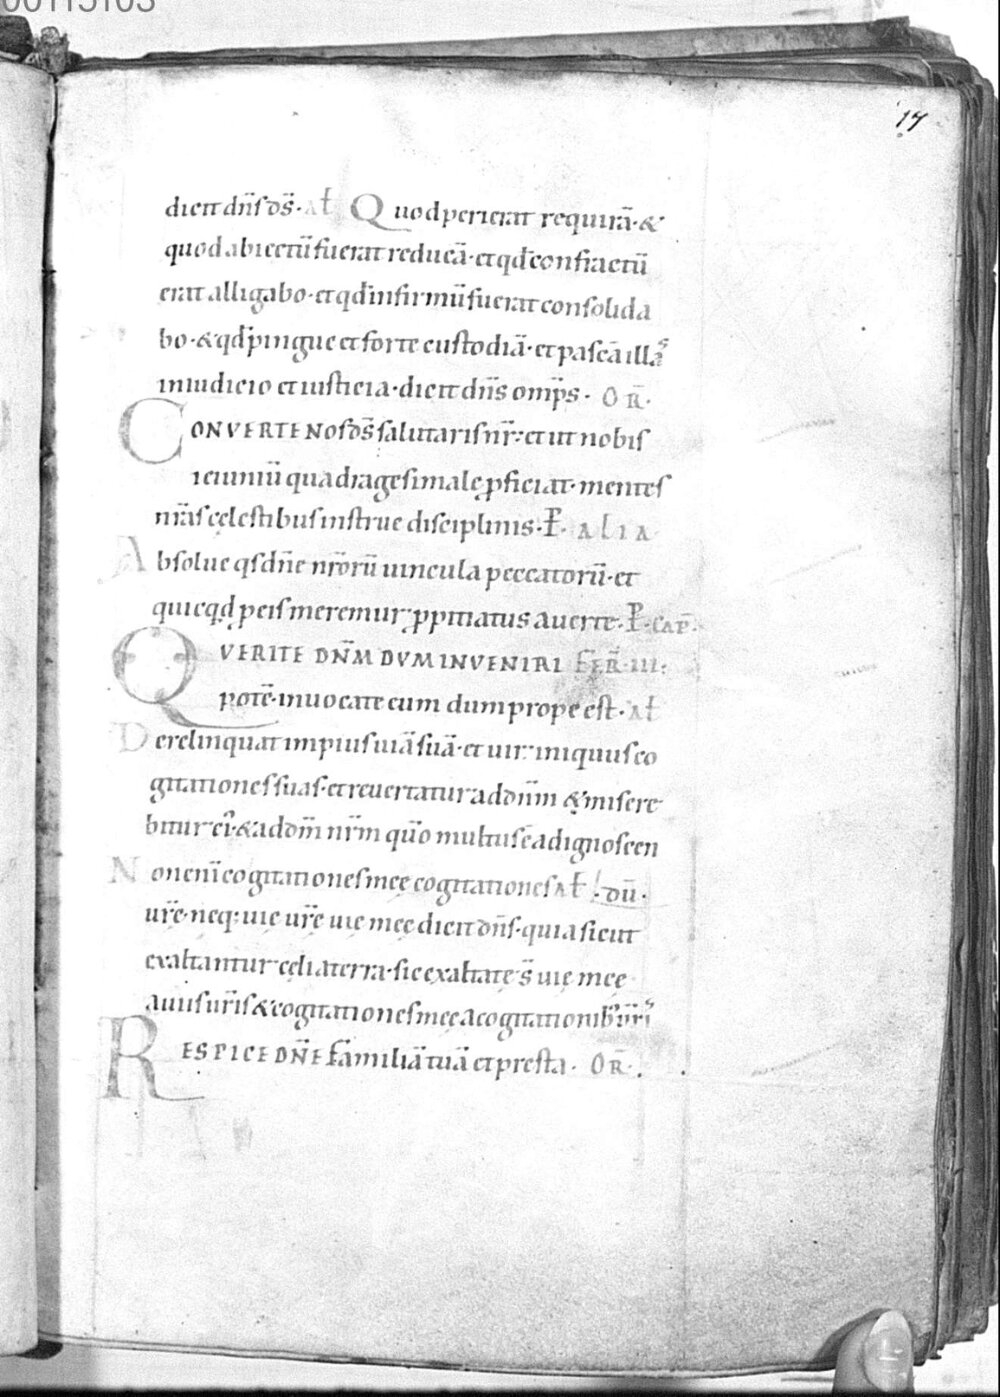 17
dicit dn̄s ds̄. at Quod perierat requirā. &
quod abiectū fuerat reducā. et qđ confractū
erat alligabo. et qđ infirmū fuerat consolida
bo. & qđ pingue et forte custodiā. et pascā illas
in iudicio et iusticia. dicit dn̄s omp̄s. OR̄.
CONVERTE nos ds̄ salutaris nr̄: et ut nobis
ieiuniū quadragesimale ꝓficiat. mentes
nr̄as cęlestibus instrue disciplinis. P̄. ALIA
Absolue qs dn̄e nr̄orū uincula peccatorū. et
quicqđ p eis meremur ꝓpitiatus auerte. P̄. CAP̄.
QVERITE DN̄M DVM INVENIRI FER̄. III:
potē. inuocate eum dum prope est. at
Derelinquat impius uiā suā. et uir iniquus co
gitationes suas. et reuertatur ad dn̄m & misere
bitur ei. & ad dm̄ nr̄m qm̄o multus ē ad ignoscen
Non enī cogitationes meę cogitationes at dū.
ur̄e. neq: uie ur̄e uie meę dicit dn̄s. quia sicut
exaltantur cęli a terra. sic exaltate s̄ uie meę
a uiis ur̄is & cogitationes meę a cogitationib: ur̄is
RESPICE DN̄E familiā tuā et presta. OR̄.